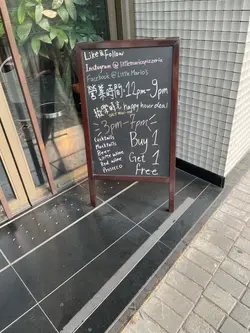 Like & Follow
Instagram @ littlemariospizzeria
Facebook @ Little Mario's
營業時間:12pm-9pm
happy hour deal
3pm-7pm
Cocktails
Mocktails
Beer
White wine
Red wine
Prosecco
Buy 1
Get 1
Free